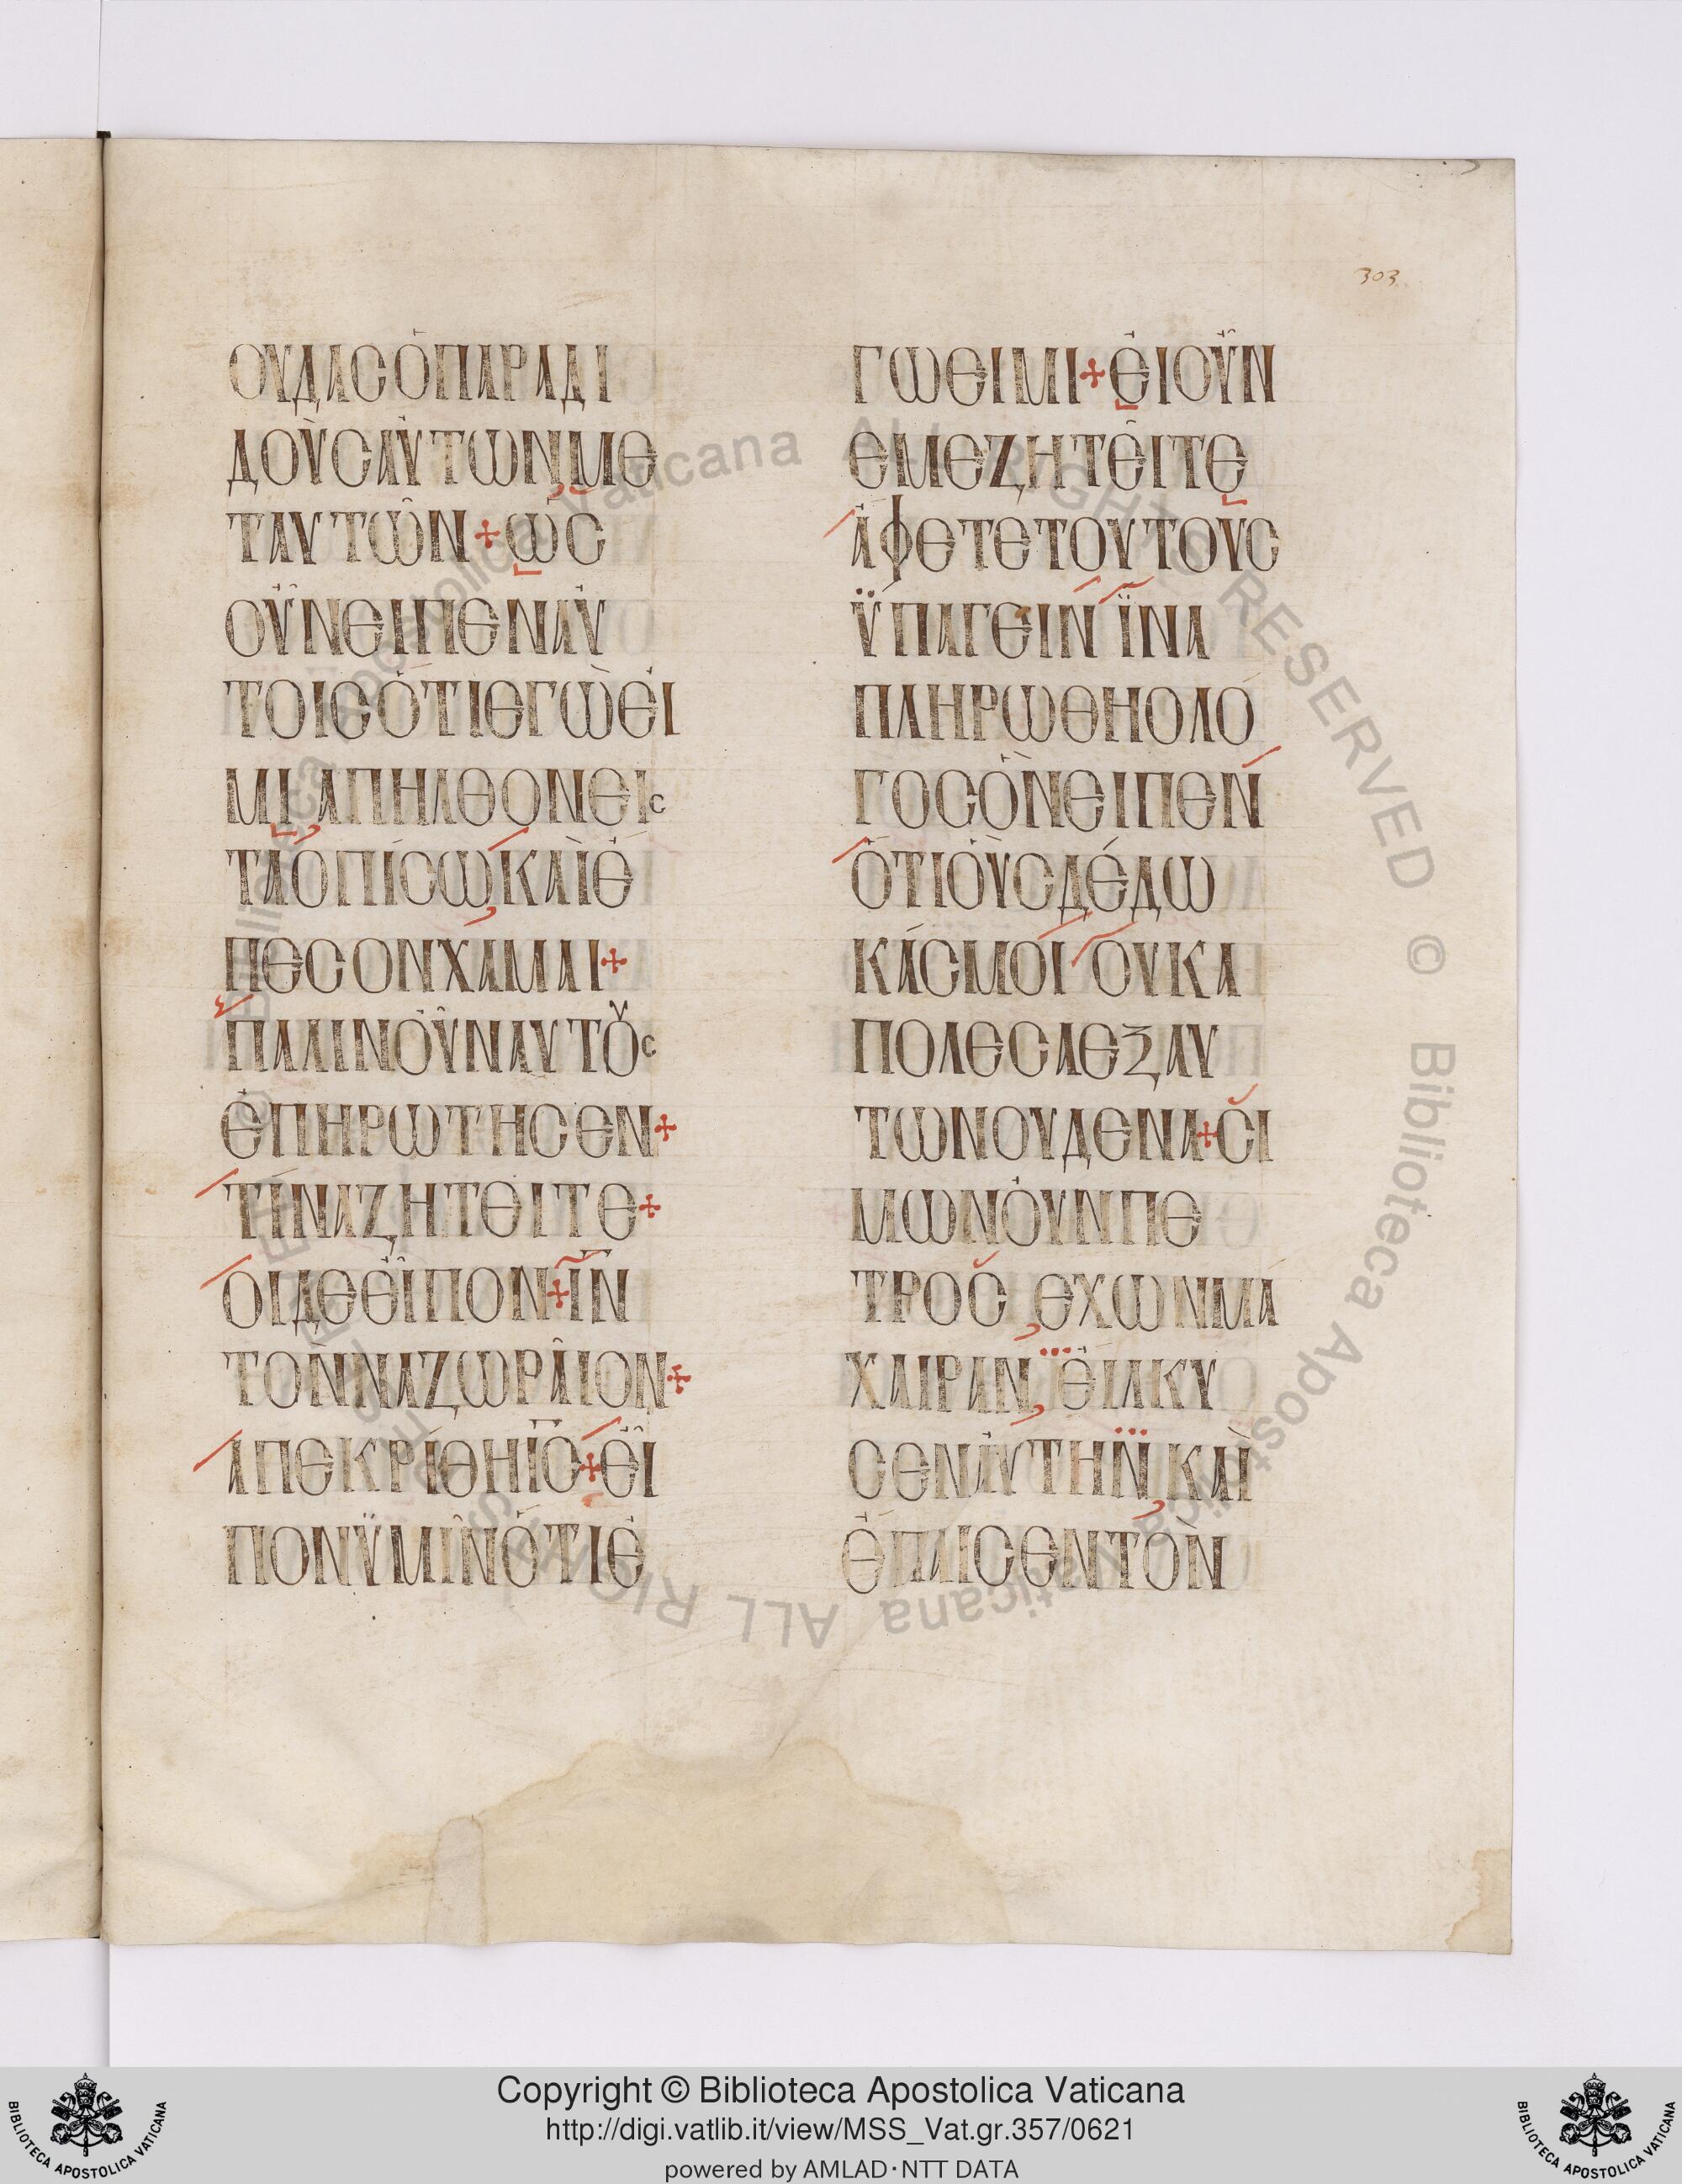 303
ΟΥΔΑCὉΠΑΡΑΔΙ
ΔΟῪCΑΥ̓ΤΩΝΜΕ
ΤΑΥΤῶΝ+ὩC
ΟΥ̓͂ΝΕΙΠΕΝΑΥ̓
ΤΟΙCὍΤΙΕΓῺΕἰ
ΜΙΑΠΗΛΘΟΝΕΙC
ΤΑὀΠΊCΩΚΑῚἘ
ΠΕCΟΝΧΑΜΑΙ+
ΠΑΛΙΝΟΥ̓͂ΝΑΥΤΟΥC
ἘΠΗΡΩΤΗCΕΝ+
ΤΊΝΑΖΗΤΕΙΤΕ+
ΟΙΔΕΕἾΠΟΝ+ΙΝ̅
ΤΟΝΝΑΖΩΡΑΙΟΝ+
ΑΠΕΚΡΊΘΗΙC̅+ΕἾ
ΠΟΝΫΜΙΝὍΤΙἘ
ΓΩΕΙΜΙ+ἘΙΟΥ̓͂Ν
ΕΜΕΖΗΤΕῖΤΕ
ἈΦΕΤΕΤΟΥΤΟΥC
ΫΠΑΓΕΙΝΪΝΑ
ΠΛΗΡΩΘΗΟΛΌ
ΓΟCὋΝΕΙΠΕΝ
ὍΤΙΟὛCΔΈΔΩ
ΚΆCΜΟΙΟΥΚΑ
ΠΟΛΕCΑΕΞΑΥ
ΤΩΝΟΥΔΕΝΑ+CΙ
ΜΩΝΟΥ̓ΝΠΕ
ΤΡΟC ΕΧΩΝΜΆ
ΧΑΙΡΑΝ,ἘΙΛΚΥ
CΕΝΑΥ̓ΤΗΝ,ΚΑῚ
ἜΠΑΙCΕΝΤῸΝ
© Biblioteca Apostolica Vaticana ALL RIGHTS RESERVED © Biblioteca Apostolica Vaticana ALL RIGHTS RESERVED
Copyright © Biblioteca Apostolica Vaticana
http://digi.vatlib.it/view/MSS_Vat.gr.357/0621
powered by AMLAD·NTT DATA
BIBLIOTECA APOSTOLICA VATICANA
BIBLIOTECA APOSTOLICA VATICANA